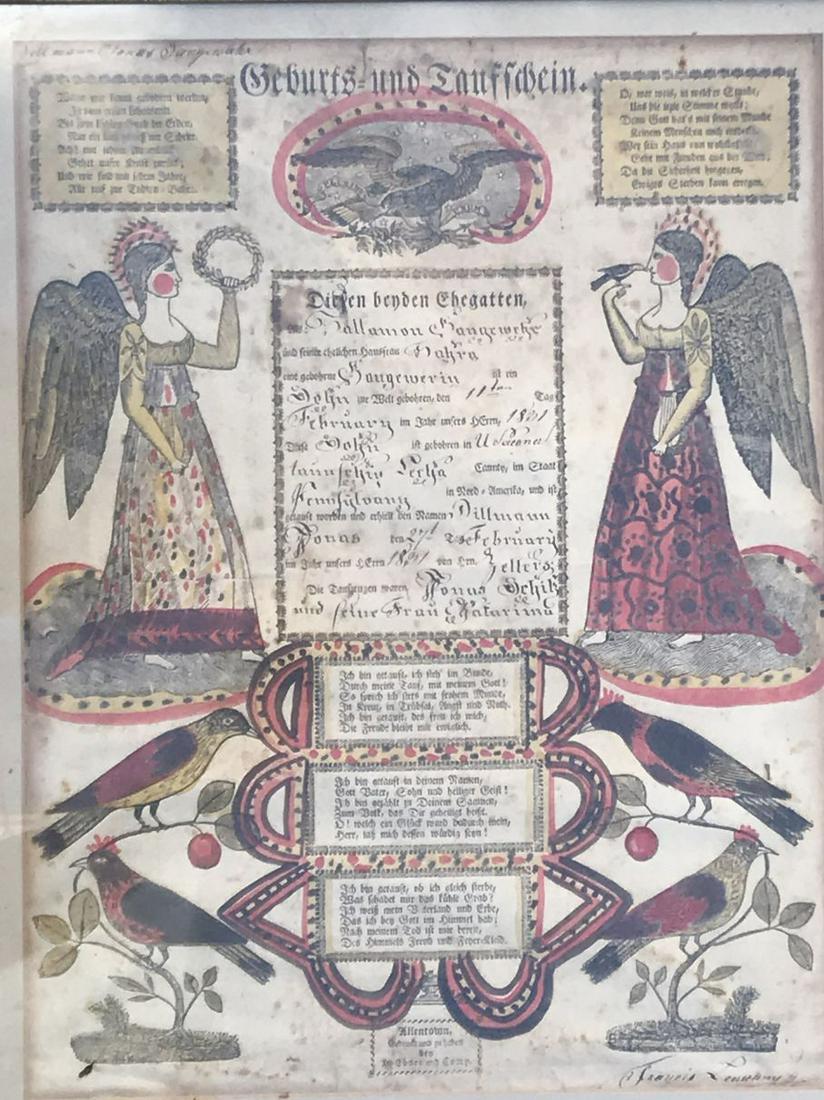 Geburts- und Taufschein.
Wenn wir kaum gebohren werden,
Ist vom ersten Lebenstritt
Bis zum kühlen Grab der Erden,
Nur ein
Ach! mit jedem
Gehet unsre Kraft zurück;
Und wir sind mit jedem Jahre,
Alle reif zur Todten-Bahre.
O, wer weiß, in welcher Stunde,
Uns die letzte Stimme weckt;
Denn Gott hat's mit seinem Munde
Keinem Menschen noch entdeckt.
Wer sein Haus nun wohlbestellt
Geht mit Freuden aus der Welt;
Da die Sicherheit hingegen,
Ewiges Sterben kann erregen.
Diesen beyden Ehegatten,
Dangewehr
und seiner ehelichen Hausfrau Sahra
eine gebohrne ist ein
Sohn zur Welt gebohren, den 11ten Tag
February im Jahr unsers HErrn, 1831
Dieser Sohn ist gebohren in
taunschip Lecha Caunty, im Staat
Pennsylvany in Nord-Amerika, und ist
getauft worden und erhielt den Namen Dillmann
Jonas den 27 February
im Jahr unsers HErrn 1831 von Hrn. Zellers
Die Taufzeugen waren Jonas
und seine Frau Catarina
Ich bin getauft, ich steh' im Bunde,
Durch meine Tauf, mit meinem Gott!
So sprech ich stets mit frohem Munde,
In Kreuz, in Trübsal, Angst und Noth.
Ich bin getauft, des freu ich mich,
Die Freude bleibt mir ewiglich.
Ich bin getauft in deinem Namen,
Gott Vater, Sohn und heiliger Geist!
Ich bin gezählt zu Deinem Saamen,
Zum Volk, das Dir geheiligt heißt.
O! welch ein Glück ward dadurch mein,
Herr, laß mich dessen würdig seyn!
Ich bin getauft, ob ich gleich sterbe,
Was schadet mir das kühle Grab?
Ich weiß mein Vaterland und Erbe,
Das ich bey Gott im Himmel hab;
Nach meinem Tod ist mir bereit,
Des Himmels Freud und Feyer-Kleid.
Allentown,
Gedruckt und zu haben
bey
und Comp.
Francis